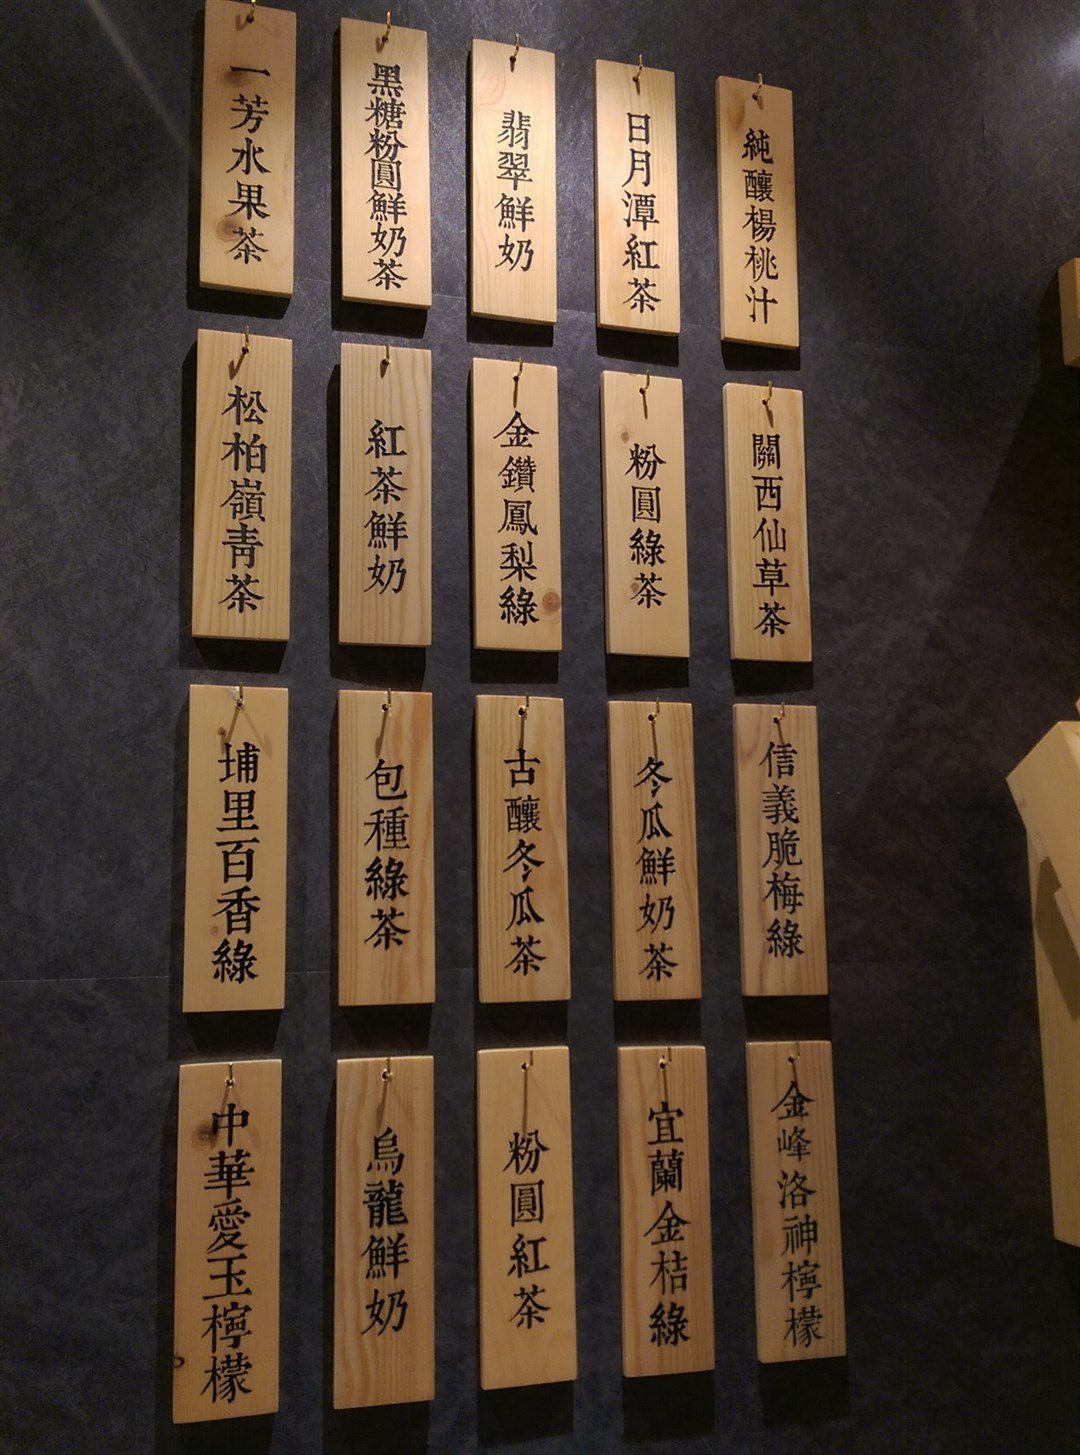 一芳水果茶
黑糖粉圓鮮奶茶
翡翠鮮奶
日月潭紅茶
純釀楊桃汁
松柏嶺青茶
紅茶鮮奶
金鑽鳳梨綠
粉圓綠茶
關西仙草茶
埔里百香綠
包種綠茶
古釀冬瓜茶
冬瓜鮮奶茶
信義脆梅綠
中華愛玉檸檬
烏龍鮮奶
粉圓紅茶
宜蘭金桔綠
金峰洛神檸檬